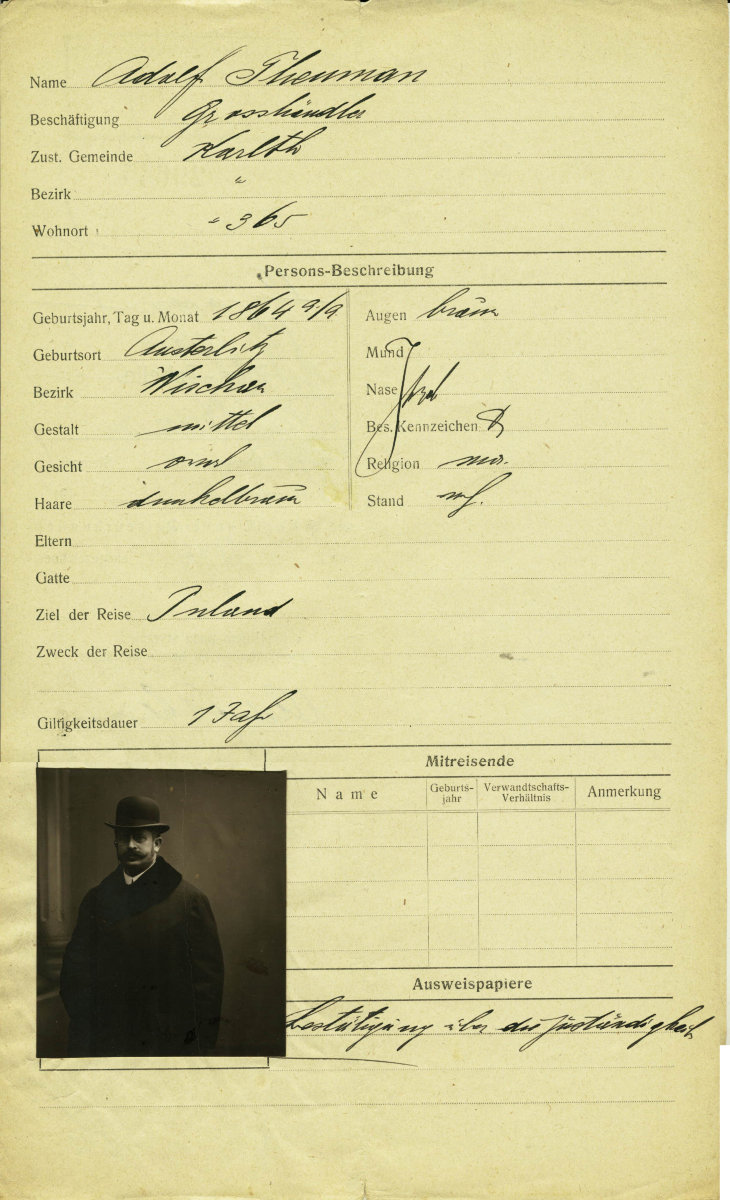 Name Adolf Theuman
Beschäftigung Grosshändler
Zust. Gemeinde Karlth
Bezirk "
Wohnort " 365
Persons-Beschreibung
Geburtsjahr, Tag u. Monat 1864 9/9
Geburtsort Austerlitz
Bezirk Wischau
Gestalt mittel
Gesicht oval
Haare dunkelbraun
Augen braun
Mund
Nase
Bes. Kennzeichen
Religion mos.
Stand
Eltern
Gatte
Ziel der Reise Inland
Zweck der Reise
Giltigkeitsdauer 1 Jahr
Mitreisende
Name Geburts-jahr Verwandtschafts-Verhältnis Anmerkung
Ausweispapiere
Bestätigung über die Zuständigkeit